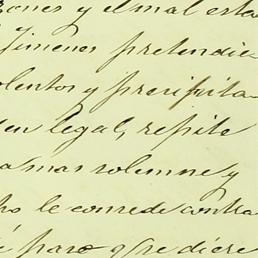 ones y el mal esta
Jimenes pretendie
olentos y precipita
en legal, repite
a mas solemne y
ho le concede contra
para q.e se diere